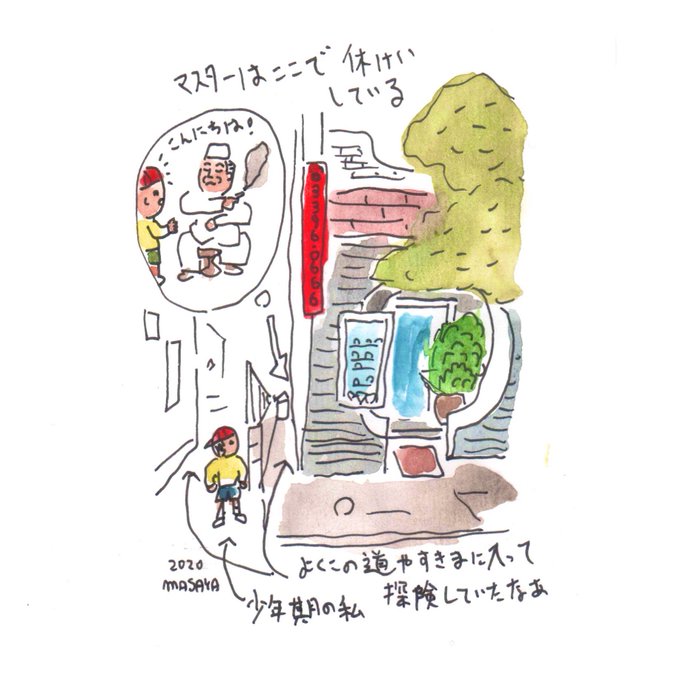 マスターはここで 休けい
している
こんにちは!
0396・0666
よくこの道やすきまに入って
探険していたなあ
2020
MASAYA
少年期の私